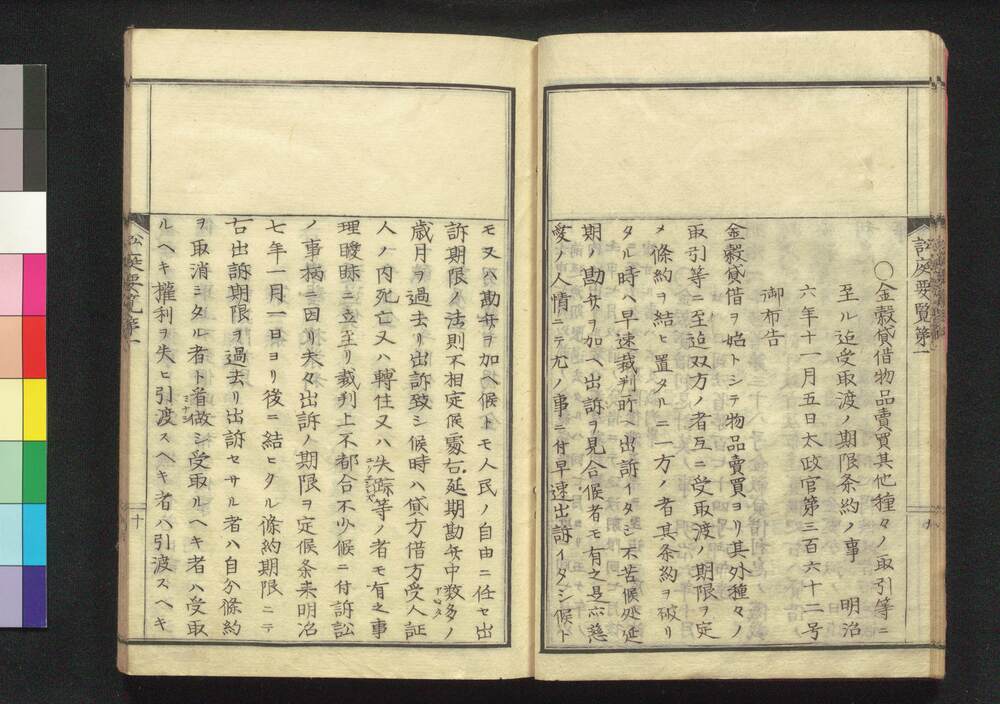 訟庭要覧第一
〇金穀貸借物品賣買其他種々ノ取引等ニ
至ル迠受取渡ノ期限条約ノ事 明治
六年十一月五日太政官第三百六十二号
御布告
金穀貸借ヲ始トシテ物品賣買ヨリ其外種々ノ
取引等ニ至迠双方ノ者互ニ受取渡ノ期限ヲ定
メ條約ヲ結ヒ置タルニ一方ノ者其条約ヲ破リ
タル時ハ早速裁判所ヘ出訴イタシ不苦候処延
期ノ勘弁ヲ加ヘ出訴ヲ見合候者モ有之是亦慈
愛ノ人情ニテ尤ノ事ニ付早速出訴イタシ候ト
九
モ又ハ勘弁ヲ加ヘ候トモ人民ノ自由ニ任セ出
訴期限ノ法則不相定候處右延期勘弁中数多ノ
アマタ
歳月ヲ過去リ出訴致シ候時ハ貸方借方受人証
人ノ内死亡又ハ轉住又ハ失踪等ノ者モ有之事
理曖昧ニ立至リ裁判上不都合不少候ニ付訴訟
ノ事柄ニ因リ夫々出訴ノ期限ヲ定候条来明治
七年一月一日ヨリ後ニ結ヒタル條約期限ニテ
右出訴期限ヲ過去リ出訴セサル者ハ自分條約
ヲ取消ニタル者ト看做シ受取ルヘキ者ハ受取
ミナシ
ルヘキ權利ヲ失ヒ引渡スヘキ者ハ引渡スヘキ
訟庭要覧第一
十